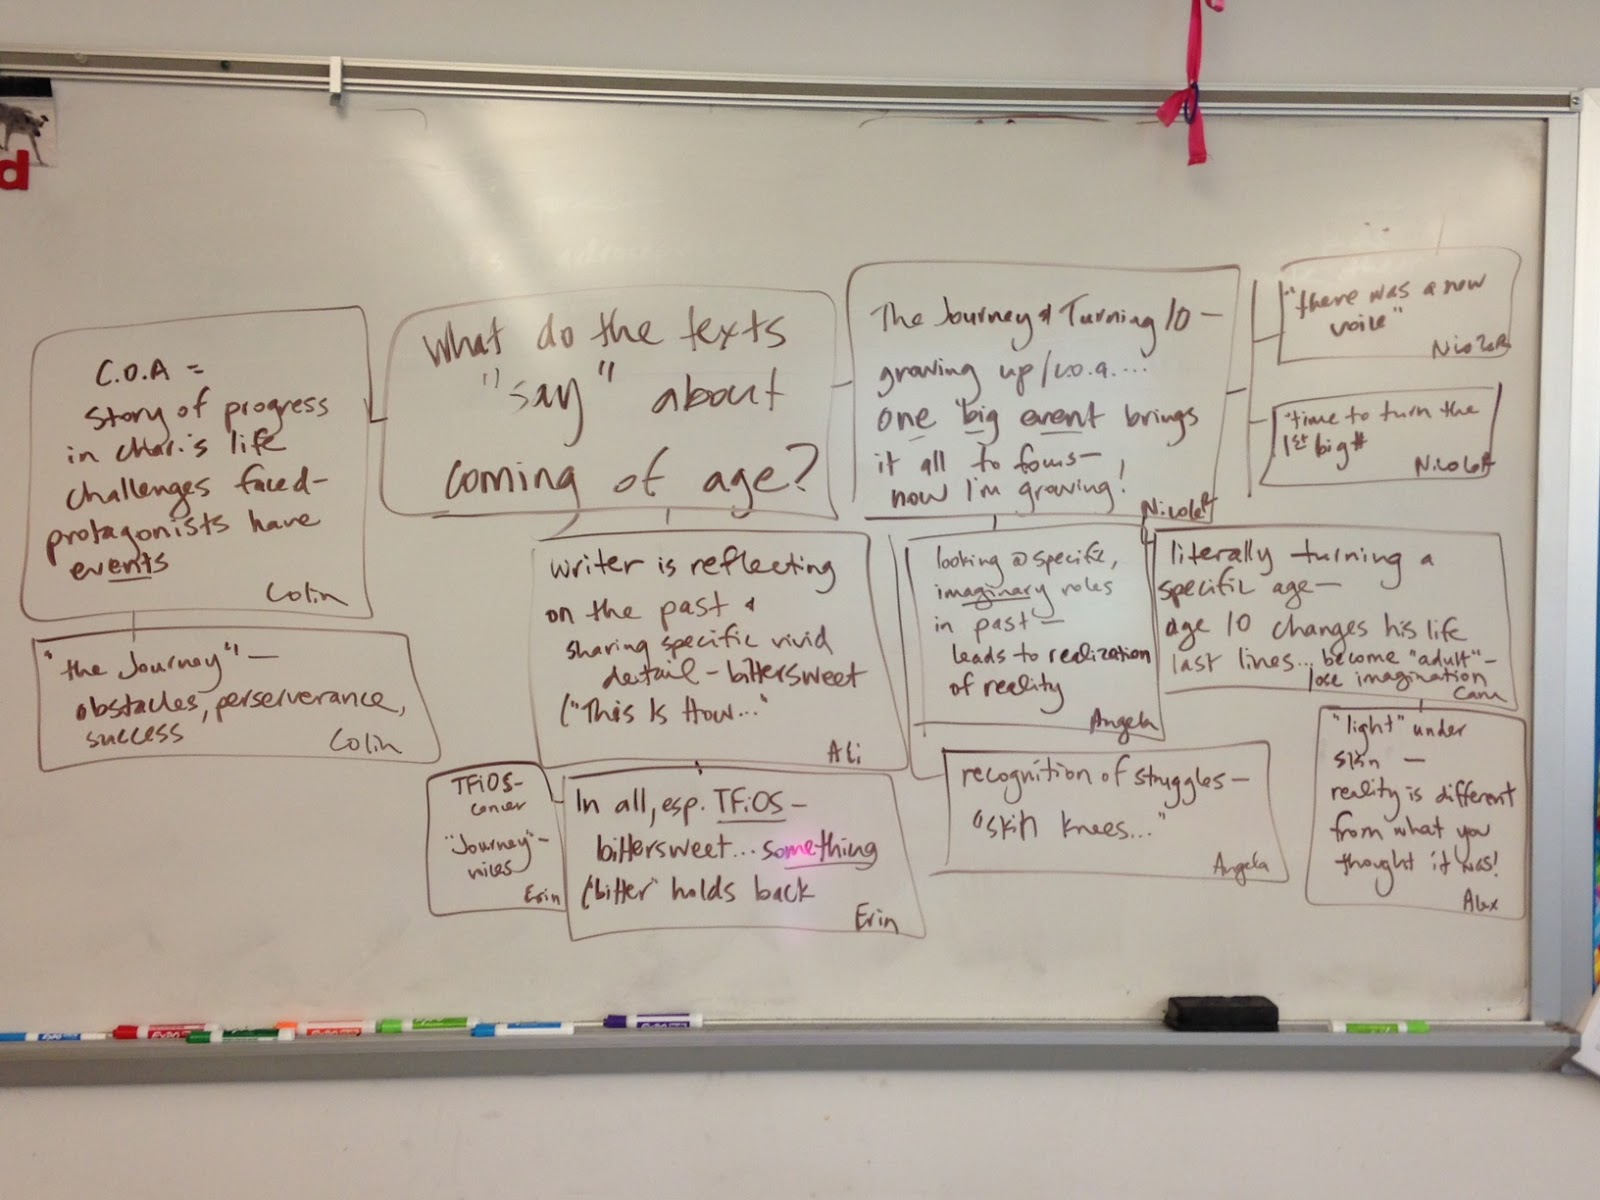 C.O.A =
story of progress
in char.'s life
challenges faced-
protagonists have
events
Colin
"the Journey" —
obstacles, perserverance,
success
Colin
What do the texts
"say" about
coming of age?
The Journey & Turning 10 —
growing up/c.o.a....
one big event brings
it all to focus—
now I'm growing!
Nicolett
"there was a new
voice"
Nicolett
"time to turn the
1st big #
Nicolett
writer is reflecting
on the past &
sharing specific vivid
detail – bittersweet
("This Is How..."
Ali
TFiOS-
cancer
"Journey" –
voices
Erin
In all, esp. TFiOS –
bittersweet... something
(bitter" holds back
Erin
looking @ specific,
imaginary roles
in past —
leads to realization
of reality
Angela
recognition of struggles—
"skin knees..."
Angela
literally turning a
specific age—
age 10 changes his life
last lines... become "adult" –
lose imagination
Cam
"light" under
skin —
reality is different
from what you
thought it was!
Alex
d